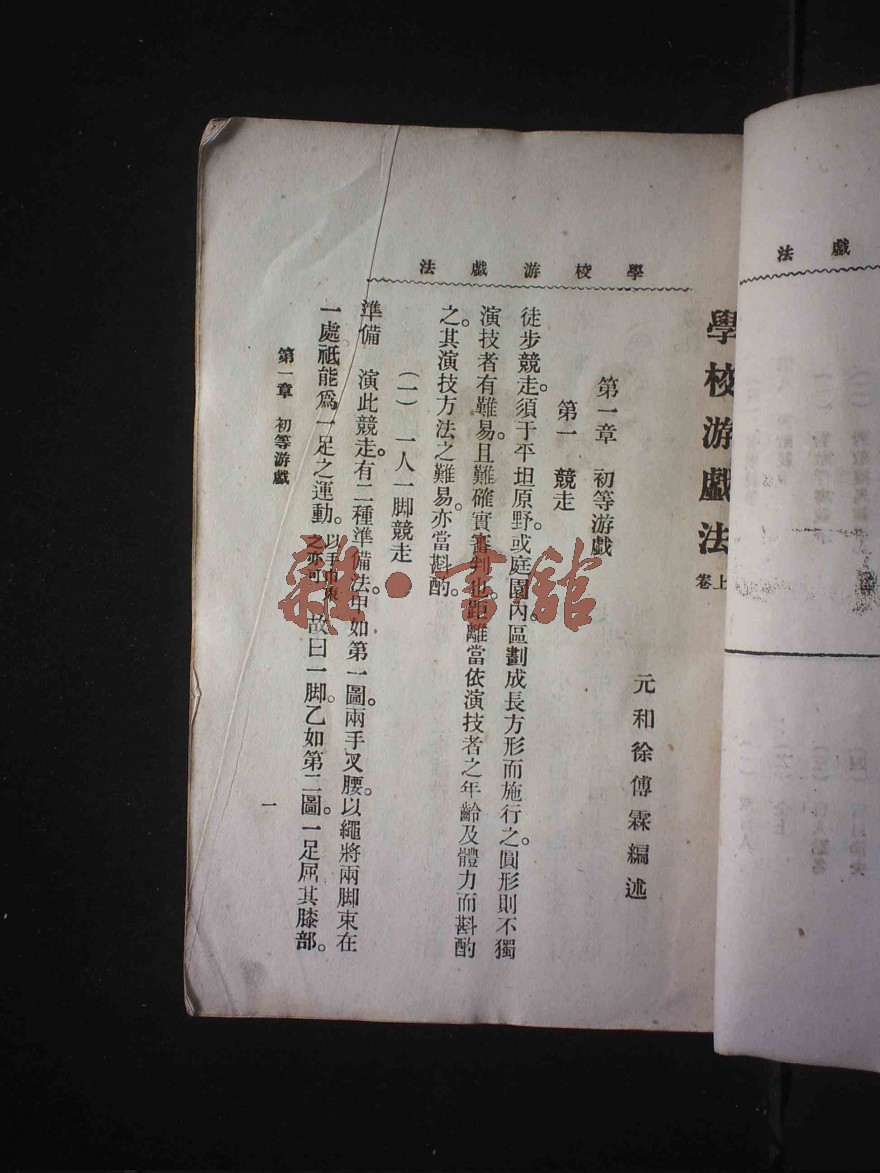 學校游戲法
學校游戲法 卷上
元和徐傅霖編述
第一章 初等游戲
第一 競走
徒步競走。須于平坦原野。或庭園內。區劃成長方形而施行之。圓形則不獨
演技者有難易。且難確實審判也。距離當依演技者之年齡及體力而斟酌
之。其演技方法之難易。亦當斟酌。
（一） 一人一脚競走
準備 演此競走。有二種準備法。甲如第一圖。兩手叉腰。以繩將兩脚束在
一處。祗能爲一足之運動。以手巾束之亦可 故曰一脚。乙如第二圖。一足屈其膝部。
第一章 初等游戲
一
戲法
雜·書館